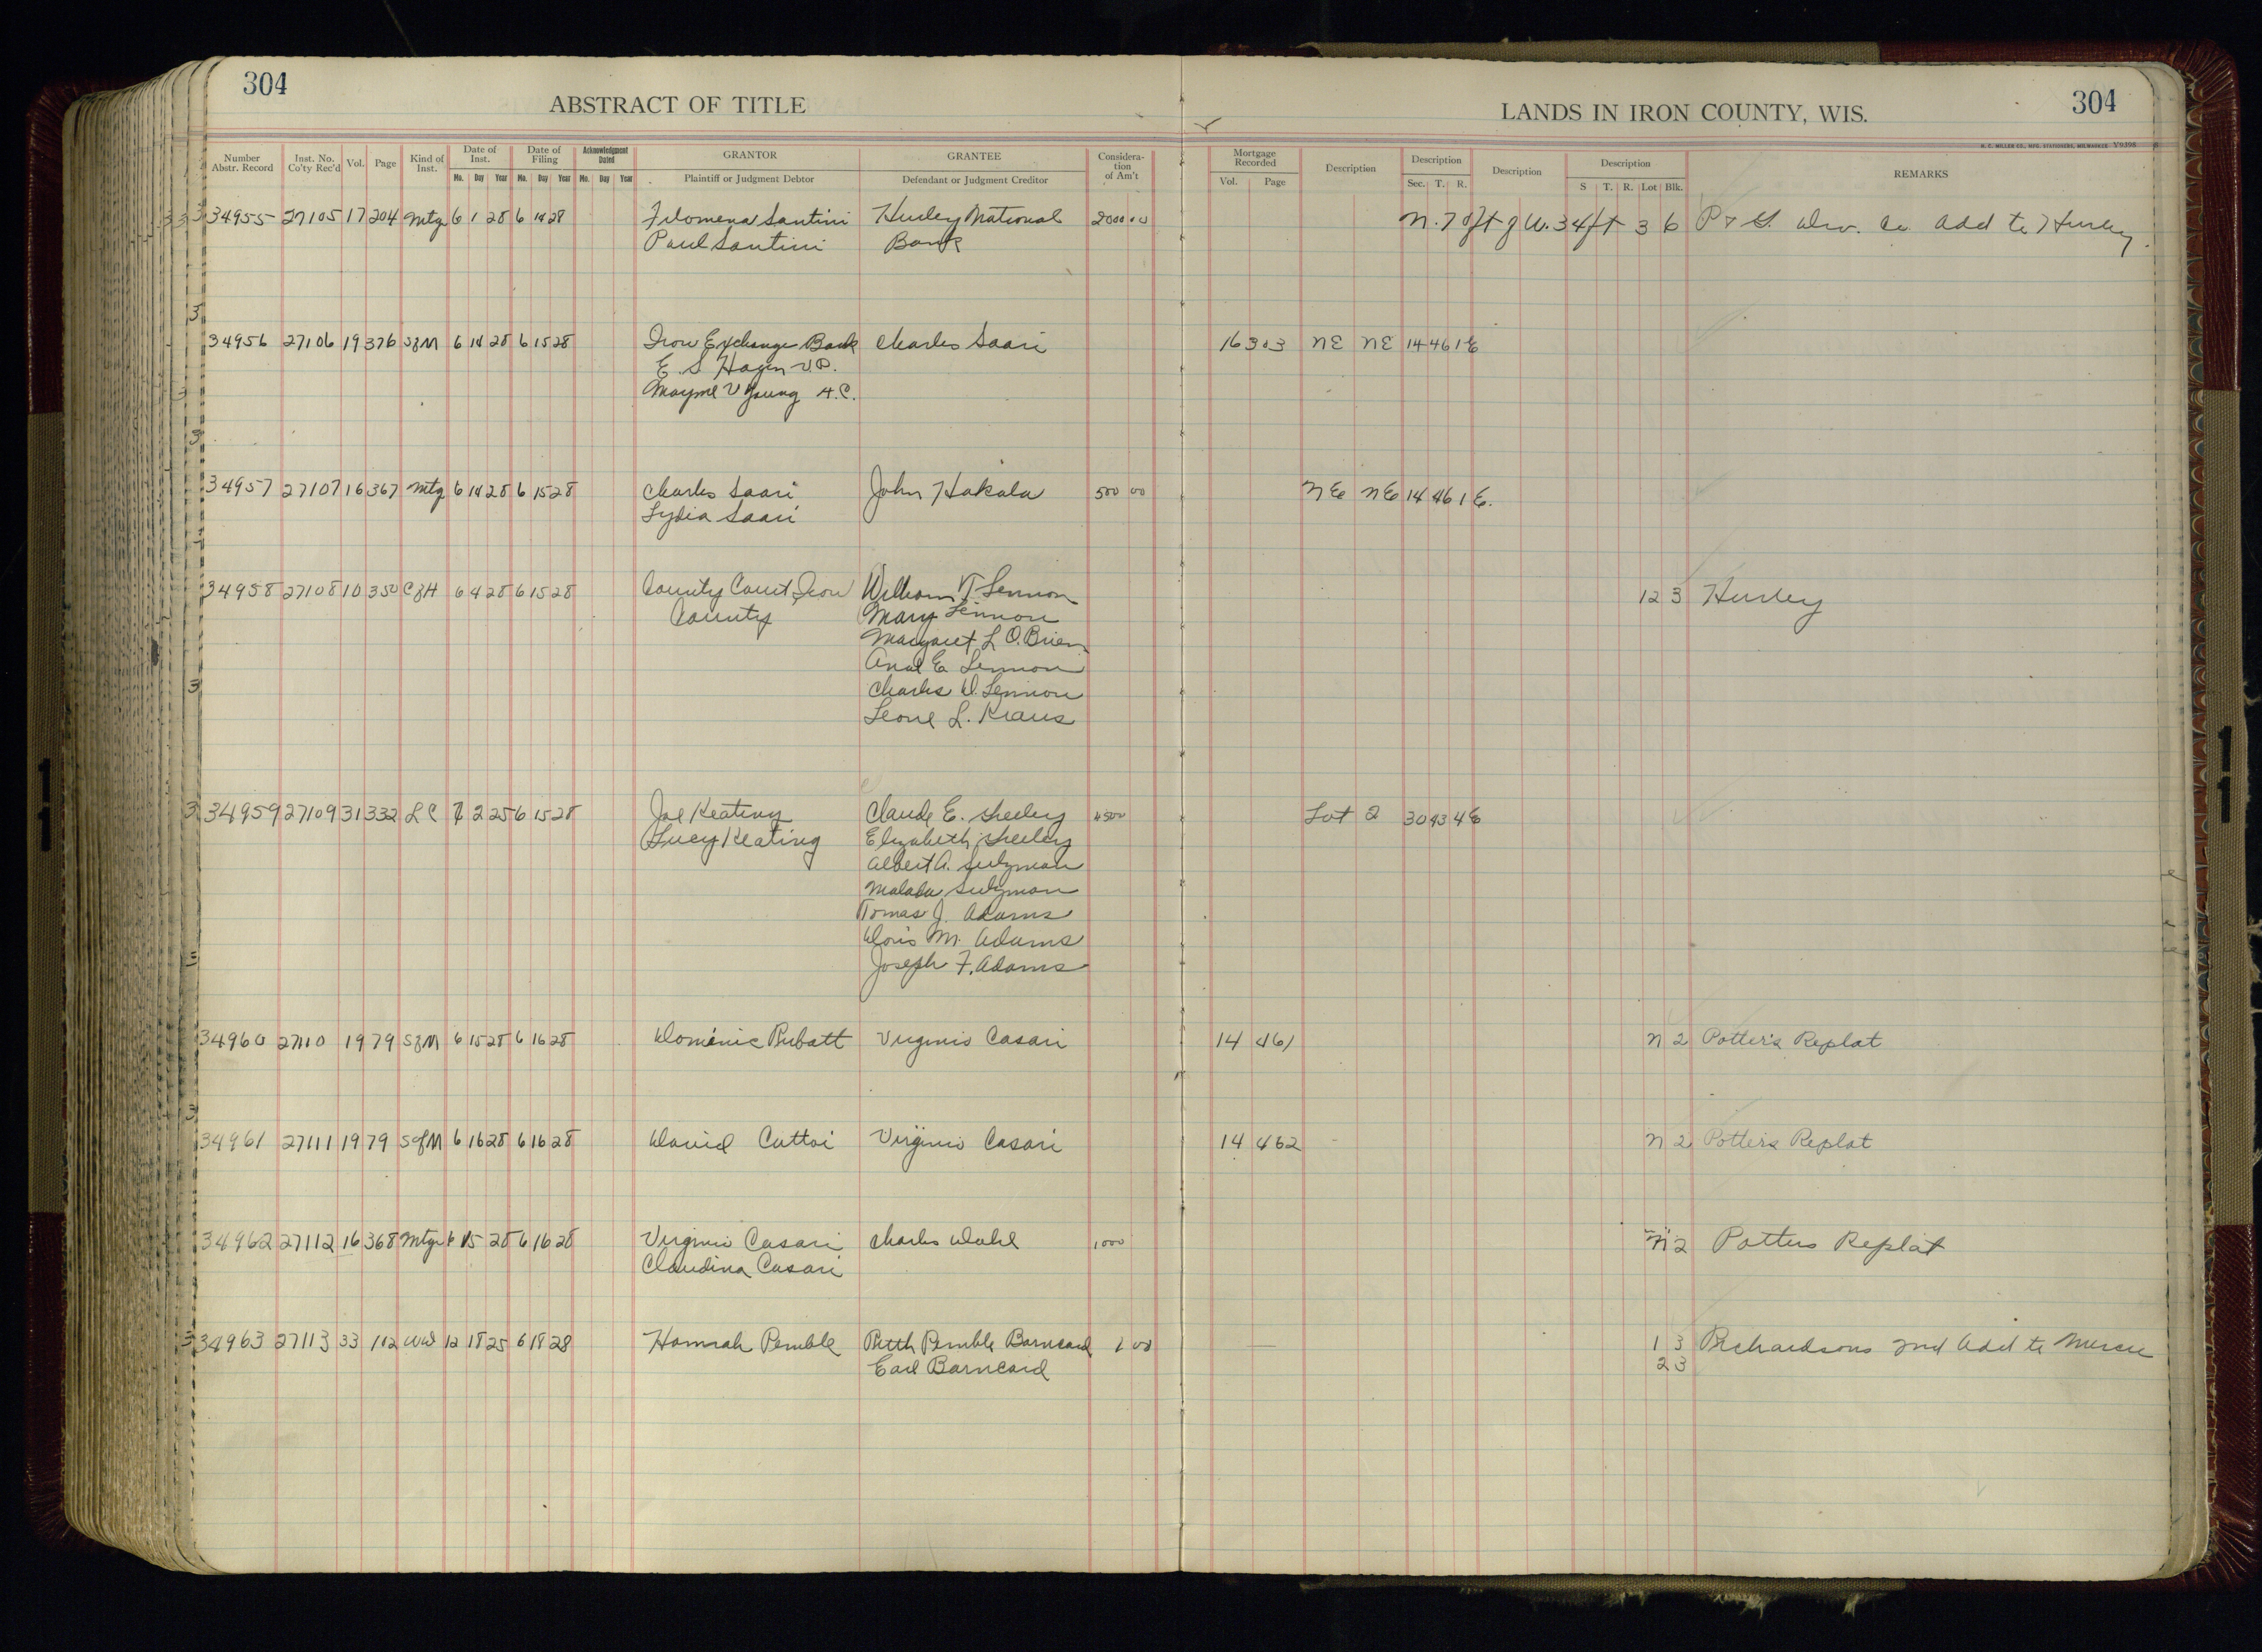 304
ABSTRACT OF TITLE
LANDS IN IRON COUNTY, WIS.
304
H. C. MILLER CO., MFG. STATIONERS, MILWAUKEE
Number Abstr. Record Inst. No. Co'ty Rec'd Vol. Page Kind of Inst. Date of Inst. Date of Filing Acknowledgment Dated GRANTOR GRANTEE Considera-tion of Am't Mortgage Recorded Description Description Description Description REMARKS
Mo. Day Year Mo. Day Year Mo. Day Year Plaintiff or Judgment Debtor Defendant or Judgment Creditor Vol. Page Sec. T. R. S T. R. Lot Blk.
34955 27105 17 204 Mtg 6 1 28 6 14 28 Filomena Santini Hurley National 2000 00 N. 70 ft of W. 34 ft 3 6 P & S. Div. Co. Add to Hurley
Paul Santini Bank
34956 27106 19 376 SfM 6 14 28 6 15 28 Iron Exchange Bank Charles Saari 16 303 NE NE 14 46 1E
E. S. Hagen V.P.
Mayme V Young A.C.
34957 27107 16 367 Mtg 6 14 28 6 15 28 Charles Saari John Hakala 500 00 NE NE 14 46 1 E.
Lydia Saari
34958 27108 10 350 CfH 6 4 28 6 15 28 County Court, Iron William T Lennon 12 3 Hurley
County Mary Lennon
Margaret L O.Brien
Anal E Lennon
Charles D. Lennon
Leone L. Kraus
34959 27109 31 332 LC 7 2 25 6 15 28 Joe Keating Claude E. Sheeley 4500 Lot 2 30 43 4E
Lucy Keating Elizabeth Sheeley
Albert A. Sulzman
Malada Sulzman
Tomas J. Adams
Doris M. Adams
Joseph F. Adams
34960 27110 19 79 SfM 6 15 28 6 16 28 Dominic Rubatt Virginio Casari 14 461 N 2 Potter's Replat
34961 27111 19 79 SofM 6 16 28 6 16 28 David Cattoi Virginio Casari 14 462 N 2 Potter's Replat
34962 27112 16 368 Mtge 6 15 28 6 16 28 Virginio Casari Charles Dahl 1000 "N" 2 Potters Replat
Claudina Casari
34963 27113 33 112 WD 12 18 25 6 18 28 Hannah Pemble Ruth Pemble Barncard 1 00 1 3 Richardsons 2nd Add to Mercer
Earl Barncard 2 3